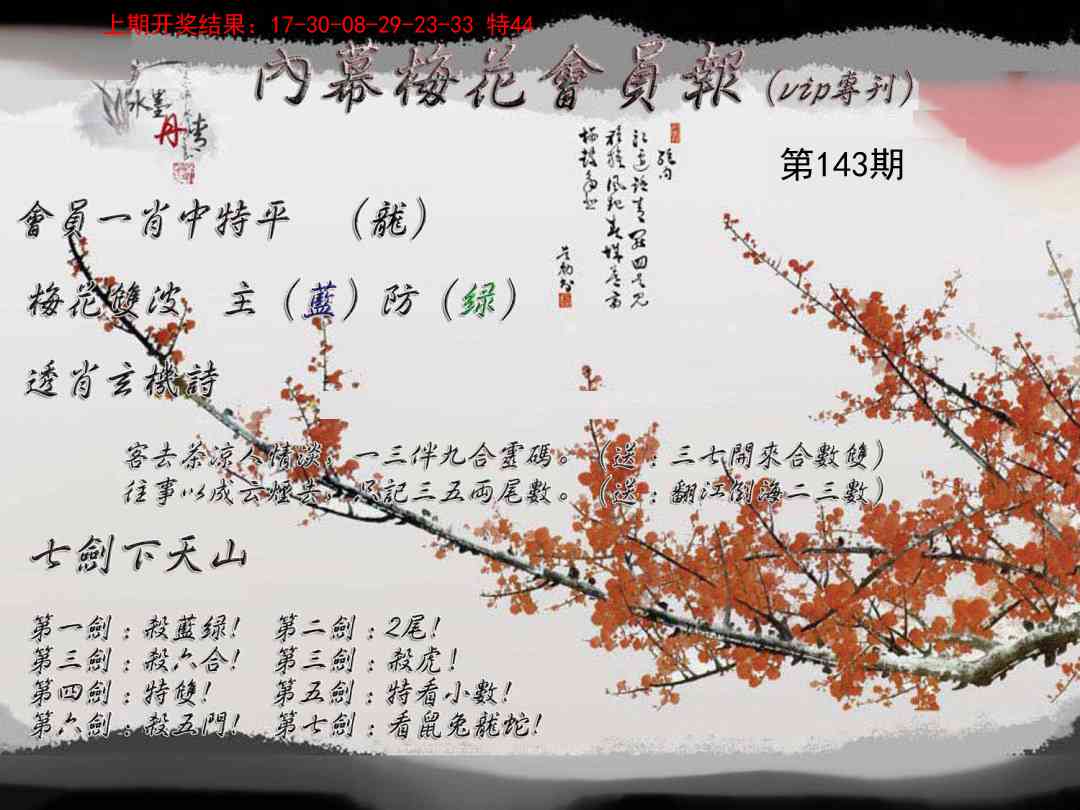 上期开奖结果：17-30-08-29-23-33 特44
內幕梅花會員報（vip專刊）
水墨
丹青
第143期
會員一肖中特平 （龍）
梅花雙波 主（藍）防（绿）
透肖玄機詩
客去茶涼人情淡，一三伴九合靈碼。（送：三七開來合數雙）
往事以成云煙去，記三五両尾數。（送：翻江倒海二三數）
七劍下天山
第一劍：殺藍绿！ 第二劍：2尾！
第三劍：殺六合！ 第三劍：殺虎！
第四劍：特雙！ 第五劍：特看小數！
第六劍：殺五門！ 第七劍：看鼠兔龍蛇！